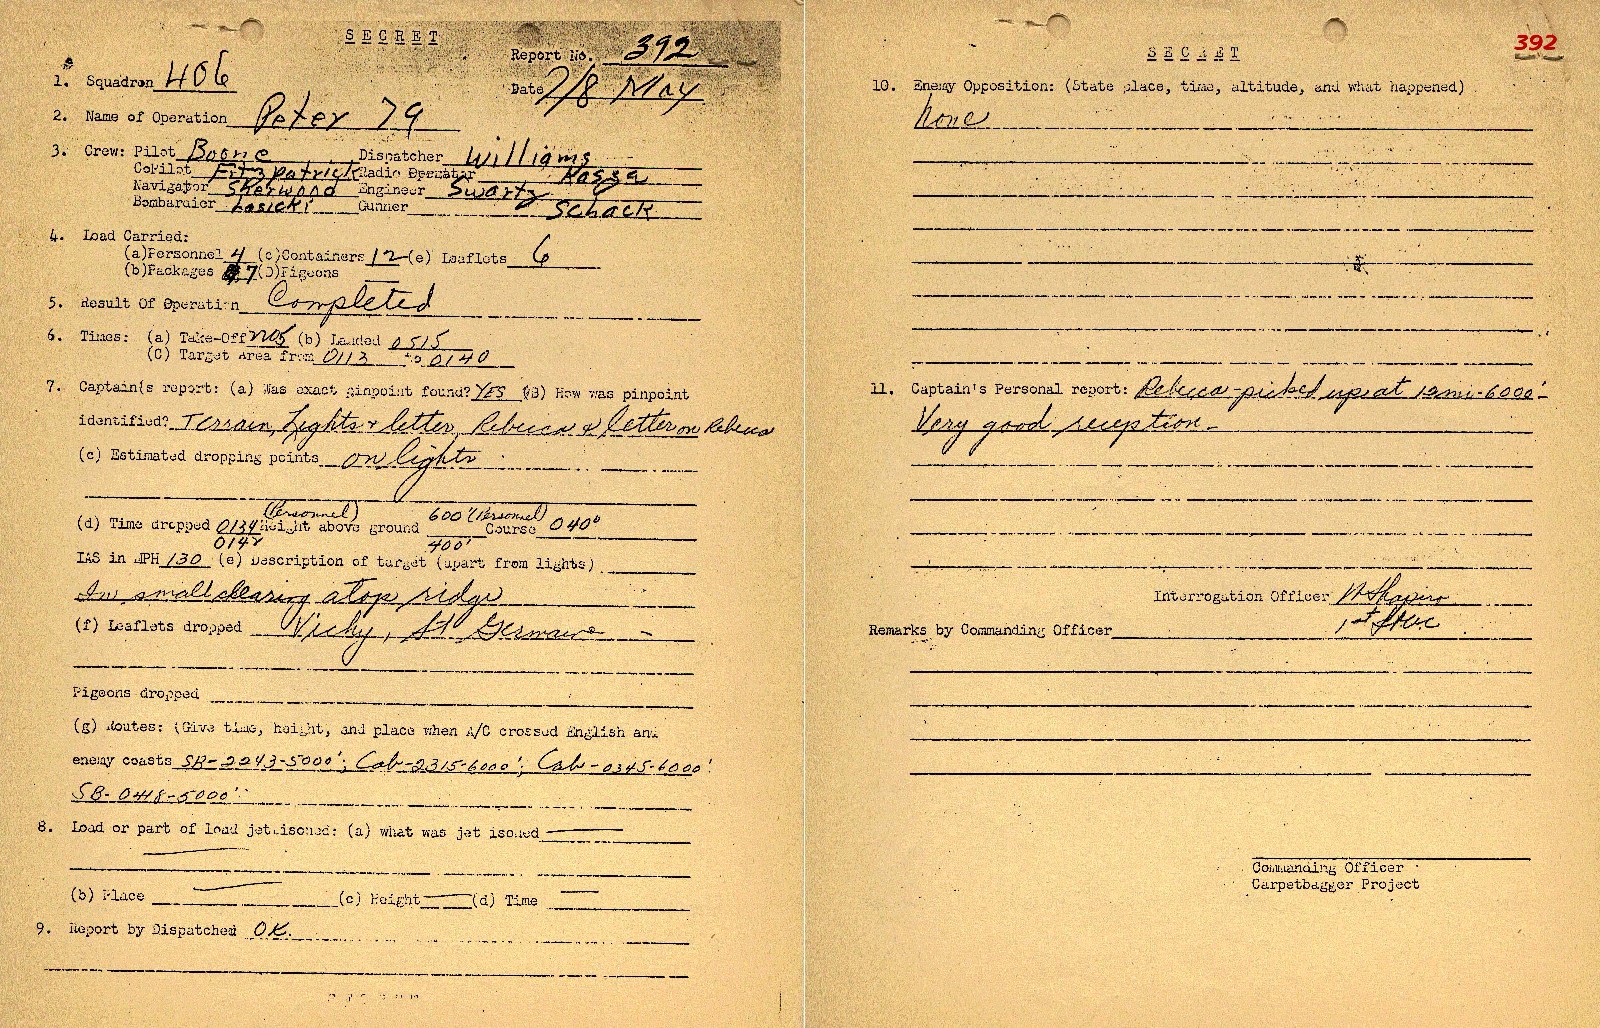 SECRET
Report No. 392
1. Squadron 406
Date 7/8 May
2. Name of Operation Peter 79
3. Crew: Pilot Boone Dispatcher Williams
CoPilot Fitzpatrick Radio Operator
Navigator Sherwood Engineer Swartz
Bombardier Losicki Gunner Schack
4. Load Carried:
(a)Personnel 4 (c)Containers 12 (e) Leaflets 6
(b)Packages 7 (D)Pigeons
5. Result Of Operation Completed
6. Times: (a) Take-Off 2205 (b) Landed 0515
(C) Target Area from 0113 to 0140
7. Captain's report: (a) Was exact pinpoint found? YES (B) How was pinpoint
identified? Terrain, Lights & letter, Rebecca & letter on Rebecca
(c) Estimated dropping points on lights
(Personnel) 600' (Personnel)
(d) Time dropped 0134 Height above ground Course 040°
0142 400'
IAS in MPH 130 (e) Description of target (apart from lights)
In small clearing atop ridge
(f) Leaflets dropped Vichy, St Germain -
Pigeons dropped
(g) Routes: (Give time, height, and place when A/C crossed English and
enemy coasts SB-2243-5000'; Cab-2315-6000'; Cab-0345-6000'
SB-0418-5000'
8. Load or part of load jettisoned: (a) what was jettisoned
(b) Place (c) Height (d) Time
9. Report by Dispatched OK.
SECRET
392
10. Enemy Opposition: (State place, time, altitude, and what happened)
None
11. Captain's Personal report: Rebecca-picked up at 12mi-6000'-
Very good reception-
Interrogation Officer W Shapiro
1st
Remarks by Commanding Officer
Commanding Officer
Carpetbagger Project